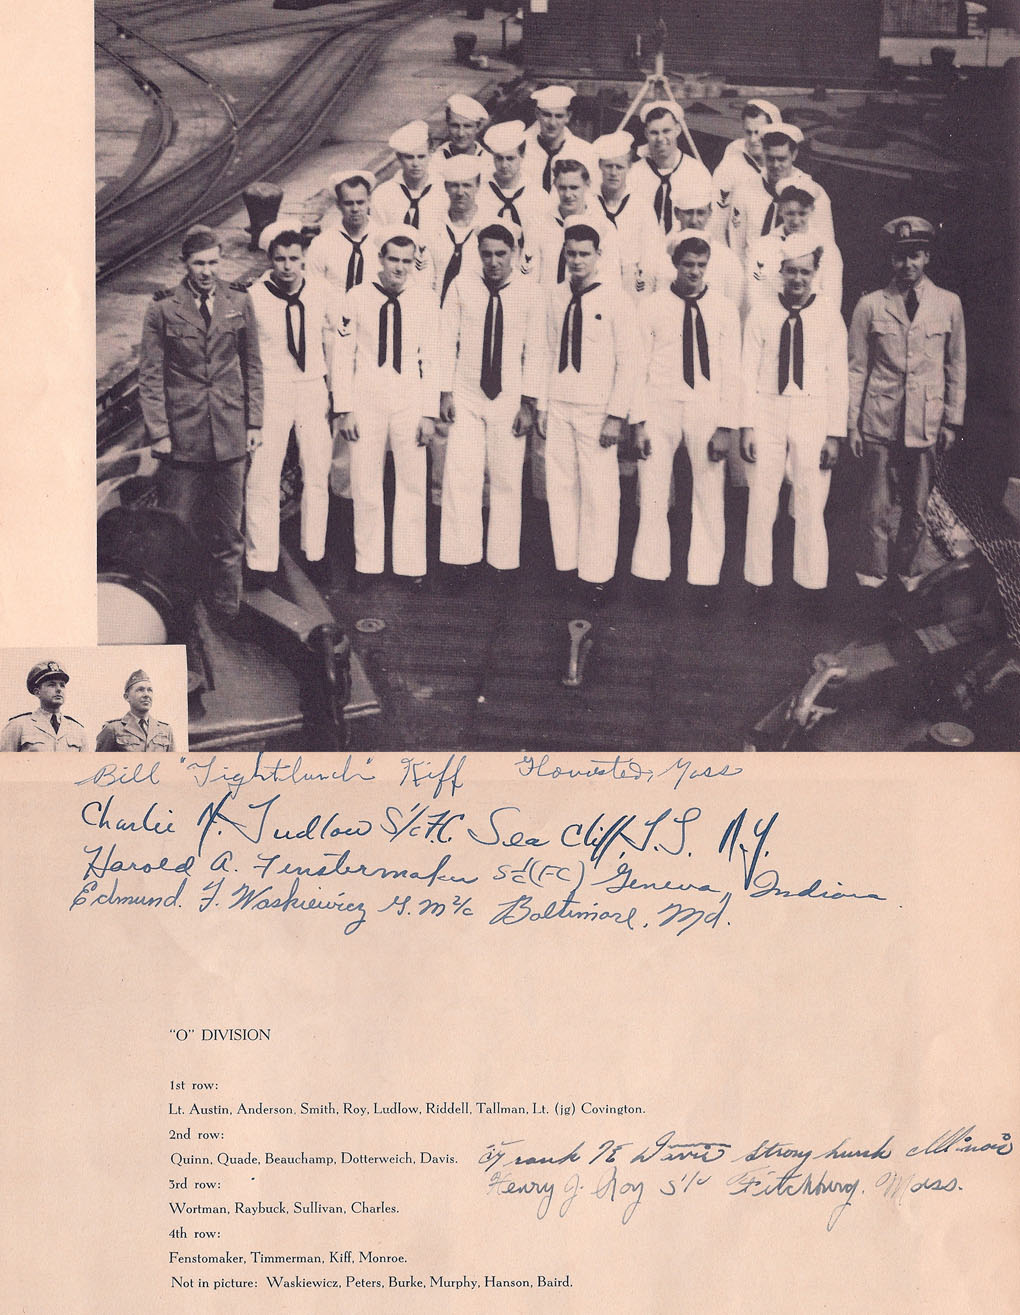 Bill "Tightlunch" Kiff
Mass
Charlie N. Ludlow S1/c F.C. Sea Cliff, L.I. N.Y.
Harold A. Fenstermaker S1/c (FC) Geneva, Indiana
Edmund. F. Waskiewicz G.M 2/c Baltimore, Md.
"O" DIVISION
1st row:
Lt. Austin, Anderson, Smith, Roy, Ludlow, Riddell, Tallman, Lt. (jg) Covington.
2nd row:
Quinn, Quade, Beauchamp, Dotterweich, Davis.
Frank E Davis Illinois
3rd row:
Henry J. Roy S1/c Fitchburg, Mass.
Wortman, Raybuck, Sullivan, Charles.
4th row:
Fenstomaker, Timmerman, Kiff, Monroe.
Not in picture: Waskiewicz, Peters, Burke, Murphy, Hanson, Baird.